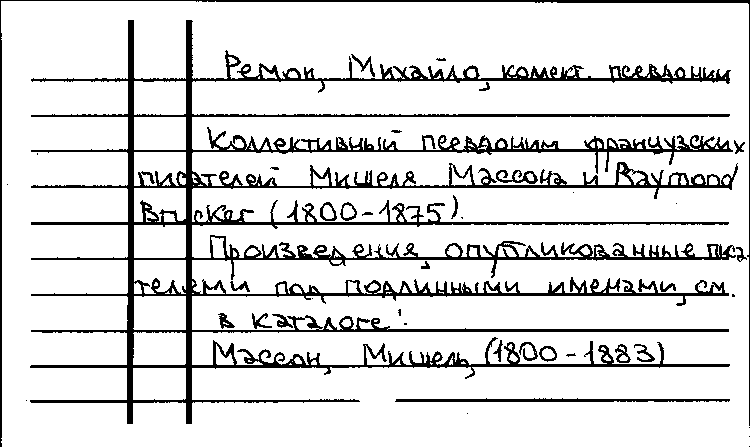 Ремон, Михайло, коллект. псевдоним
Коллективный псевдоним французских
писателей Мишеля Массона и Raymond
Brucker (1800-1875).
Произведения, опубликованные писа-
телями под подлинными именами, см.
в каталоге:
Массон, Мишель, (1800-1883)